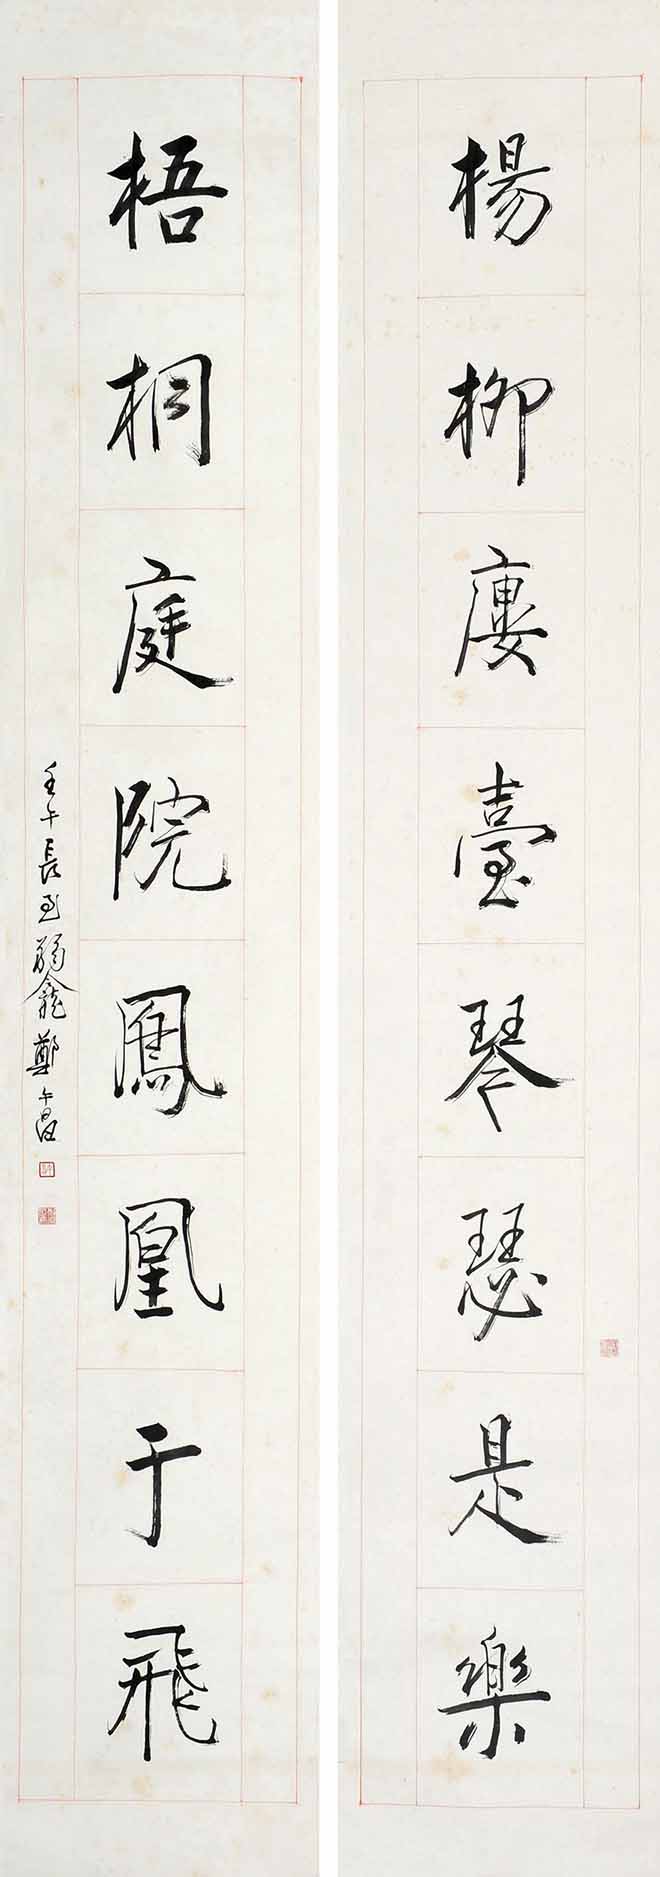 楊柳廔臺琴瑟是樂
梧桐庭院鳳凰于飛
壬午長至弱龕鄭午昌